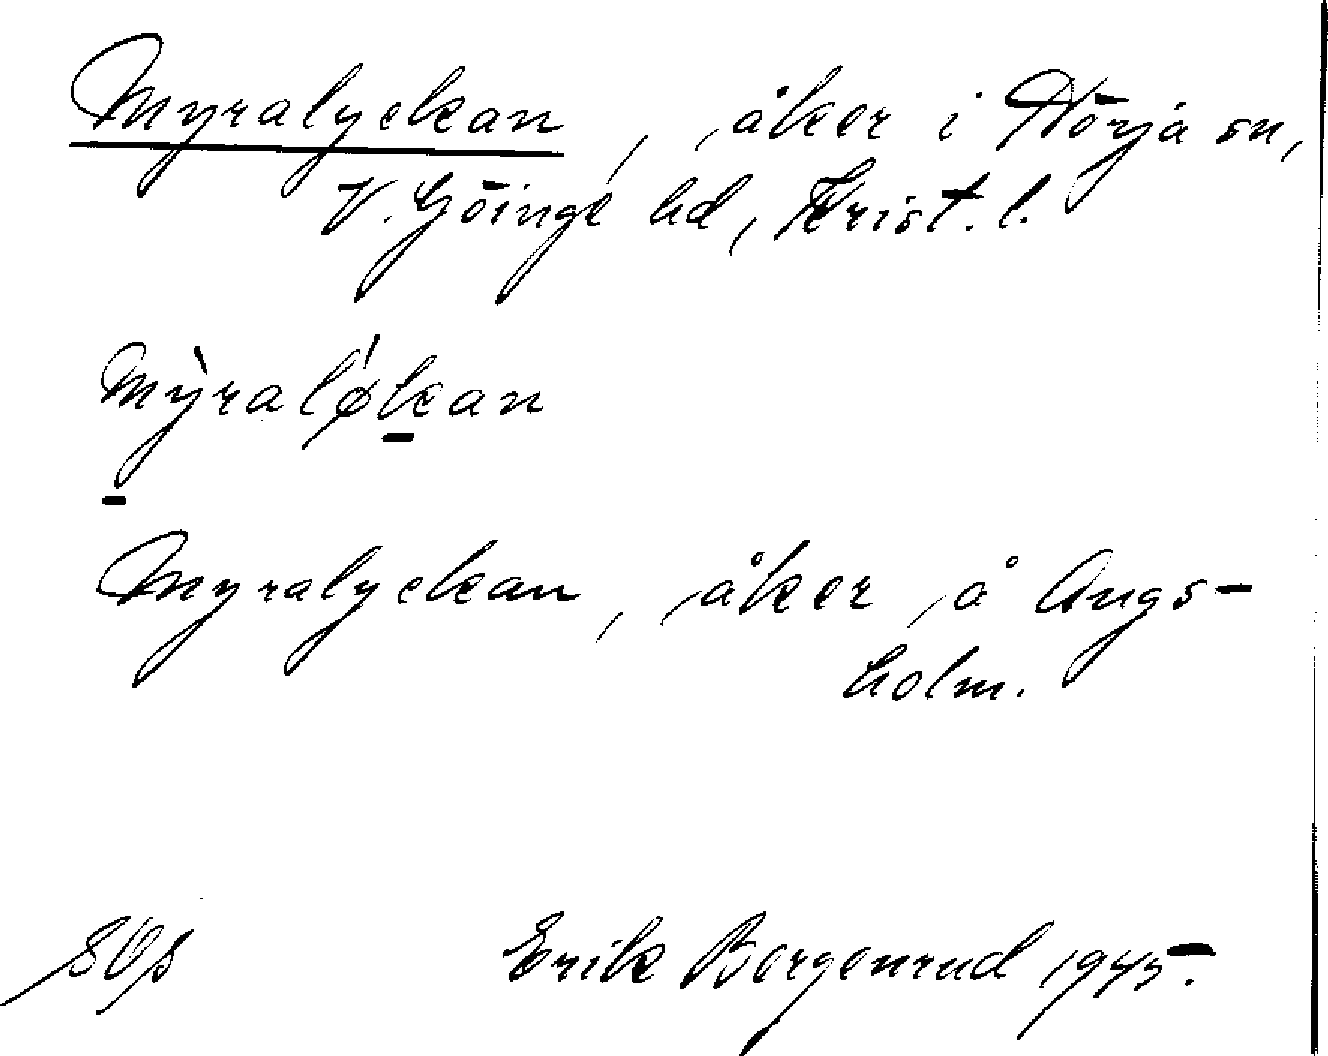 Myralyckan, åker i Hörja sn,
V. Göinge hd, Krist. l.
Mỳraløkan
Myralyckan, åker å Ängs-
holm.
Erik Bergenrud 1945.